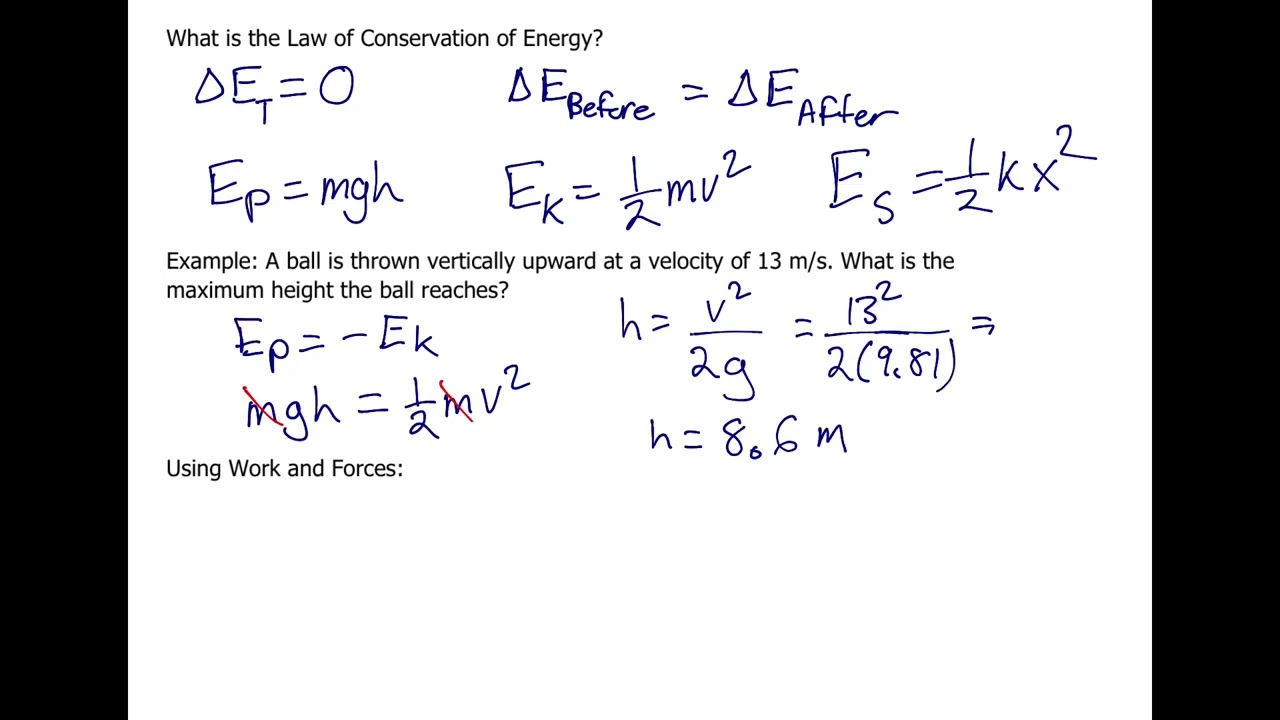 What is the Law of Conservation of Energy?
ΔE_T = 0    ΔE_Before = ΔE_After
E_p = mgh    E_k = 1/2 mv²    E_s = 1/2 kx²
Example: A ball is thrown vertically upward at a velocity of 13 m/s. What is the
maximum height the ball reaches?
E_p = -E_k
mgh = 1/2 mv²
h = v²/2g = 13²/2(9.81) =
h = 8.6 m
Using Work and Forces: